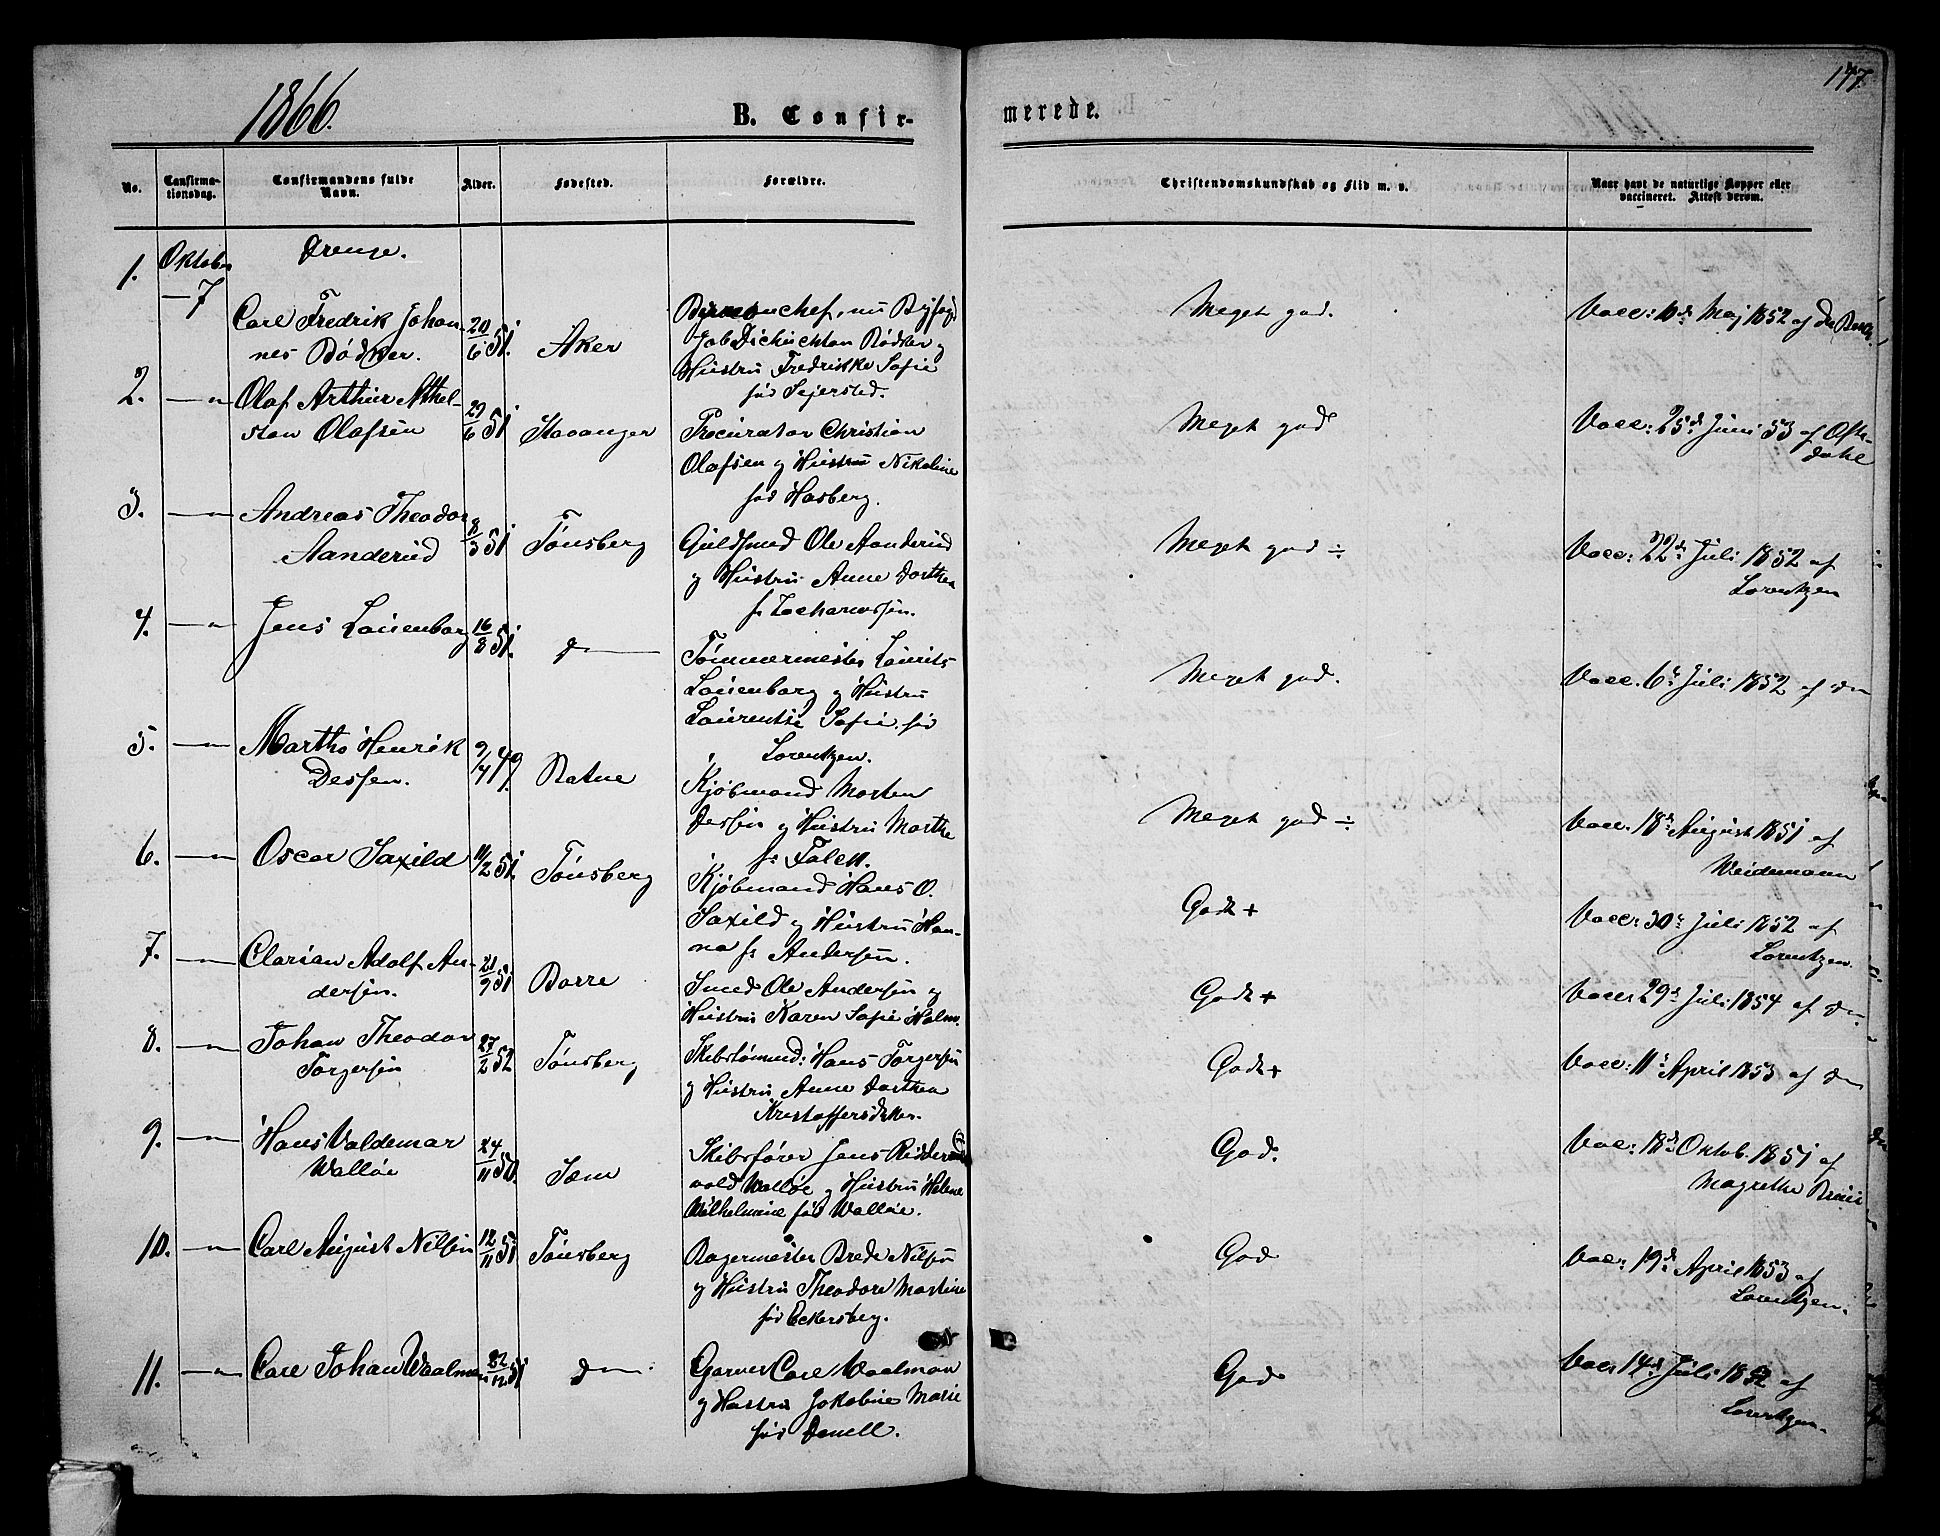 1866.
B. Confir-
merede.
147.
No.
Confirma-
tionsdag.
Confirmandens fulde
Navn.
Alder.
Fødested.
Forældre.
Christendomskundskab og Flid m. v.
Naar havt de naturlige Kopper eller
vaccineret. Attest derom.
Drenge.
1. Oktober
7
Carl Fredrik Johan-
nes Bödker.
20/6 51.
Aker
nu Byfogd
Job Bödker og
Hustru Fredrikke Sofie
fød Sejersted.
Meget god.
Vacc: Maj 1852 af
2. —"—
Olaf Arthur Athel-
stan Olafsen
29/6 51
Stavanger
Procurator Christian
Olafsen og Hustru Nikoline
fød Hasberg.
Meget god
Vacc: 25d Juni 53 af Ofte-
dahl
3. —"—
Andreas Theodor
Aanderud
8/3 51
Tönsberg
Guldsmed Ole Aanderud
og Hustru Anne Dorthea
f: Zachariassen.
Meget god ÷
Vacc: 22d Juli 1852 af
Lorentzen
4. —"—
Jens Lauenborg
16/8 51.
d——
Tömmermester Laurits
Lauenborg og Hustru
Laurentse Sofie, fød
Lorentzen.
Meget god.
Vacc. 6d Juli 1852 af dn
5. —"—
Marths Henrik
Dessen.
9/4 49.
Ratne
Kjöbmand Morten
Dessen og Hustru Marthe
f: Falck.
Meget god ÷
Vacc. 18d August 1851 af
Weidemann
6. —"—
Oscar Saxild
11/2 51.
Tönsberg
Kjöbmand Hans O.
Saxild og Hustru Han-
na f: Andersen.
Godt +
Vacc: 30d Juli 1852 af
Lorentzen.
7. —"—
Clarian Adolf An-
dersen.
21/9 51
Borre
Smed Ole Andersen og
Hustru Karen Sofie Holm.
Godt +
Vacc: 29d Juli 1854 af dn.
8. —"—
Johan Theodor
Torgersen
27/2 52
Tönsberg
Skibstömmd: Hans Torgersen
og Hustru Anne Dorthea
Kristoffersdatter.
Godt +
Vacc: 11d April 1853 af dn
9. —"—
Hans Valdemar
Wallöe
24/11 50.
Sæm
Skibsfører Jens Ridder
vold Wallöe og Hustru Helene
Wilhelmine fød Wallöe.
God.
Vac: 18d Oktob. 1851 af
Magrethe
10. —"—
Carl August Nilsen
12/11 51
Tönsberg
Bagermester Brede Nilsen
og Hustru Theodore Martine
fød Eckersberg.
God
Vac: 19d April 1853 af
Lorentzen.
11. —"—
Carl Johan Waalman
22/12 51
d—
Garver Carl Waalman
og Hustru Jakobine Marie
fød Donell.
God
Vac: 14d Juli 1852 af
Lorentzen.